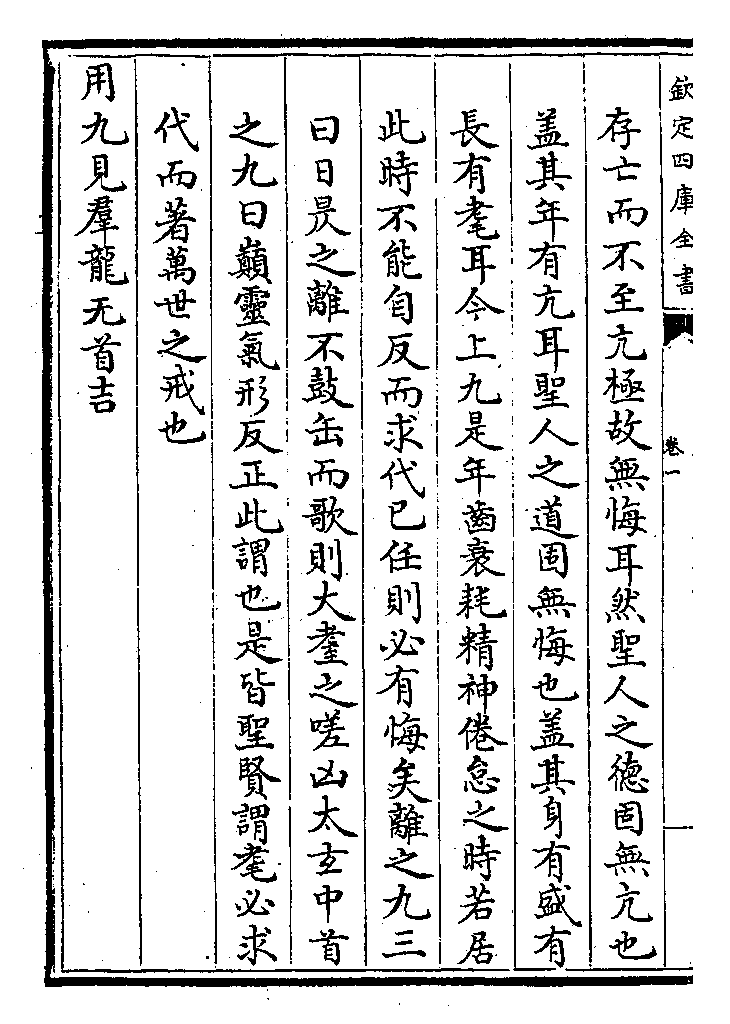 欽定四庫全書
卷一
存亡而不至亢極故無悔耳然聖人之徳固無亢也
盖其年有亢耳聖人之道固無悔也盖其身有盛有
長有耄耳今上九是年齒衰耗精神倦怠之時若居
此時不能自反而求代已任則必有悔矣離之九三
曰日昃之離不鼓缶而歌則大耋之嗟凶太玄中首
之九曰巔靈氣形反正此謂也是皆聖賢謂耄必求
代而著萬世之戒也
用九見羣龍无首吉